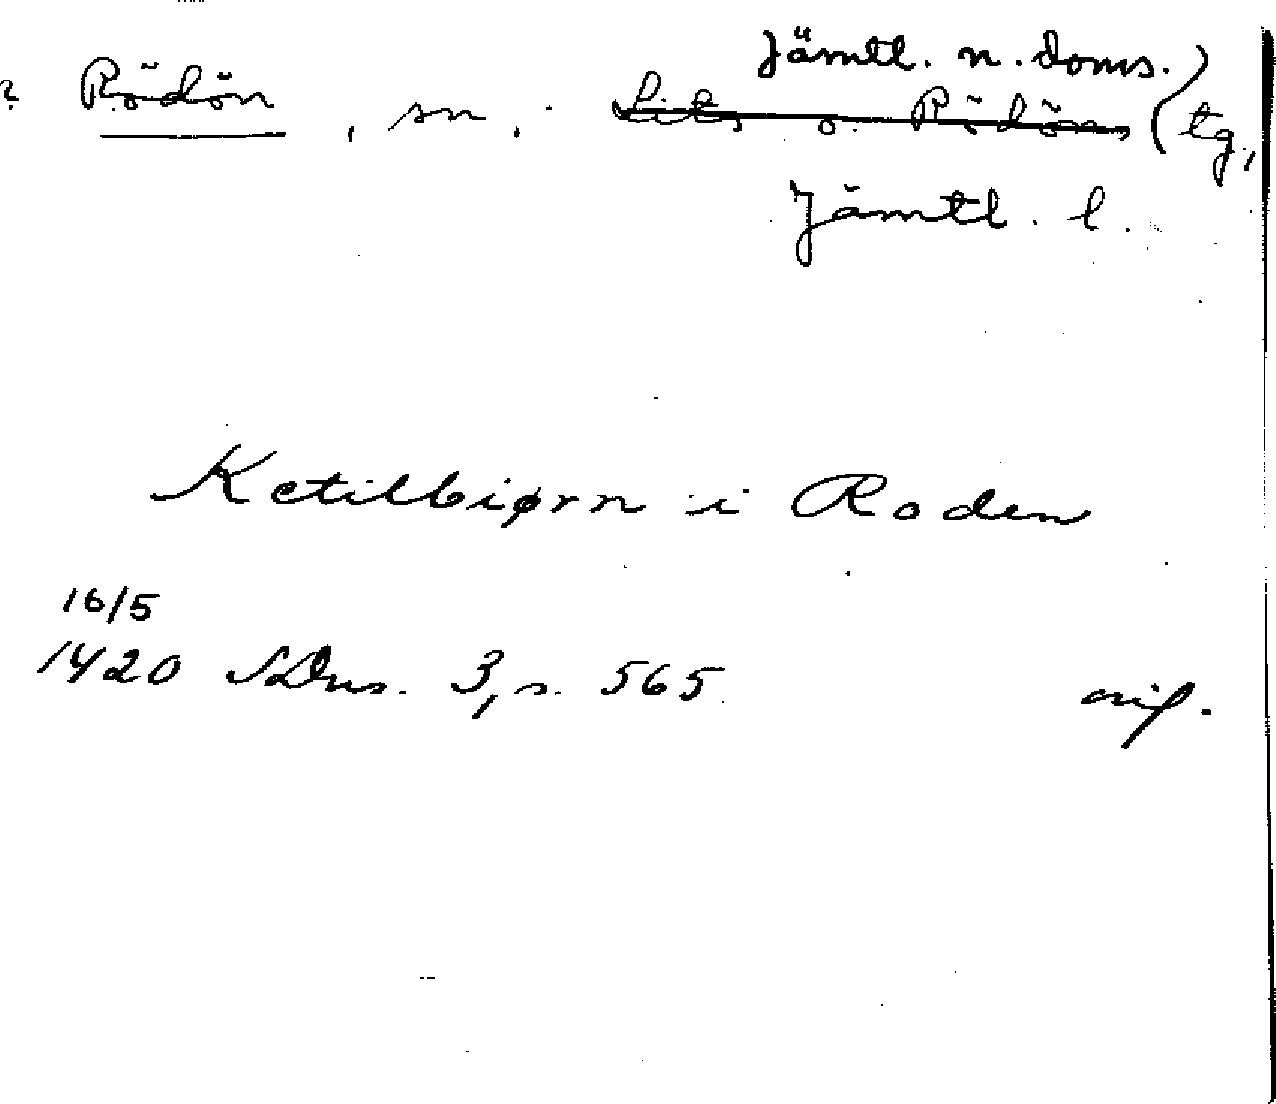 Jämtl. n. doms.
? Rödön, sn, Lits o. Rödöns tg,
Jämtl. l.
Ketilbiørn i Roden
16/5
1420 SDns. 3, s. 565 orig.